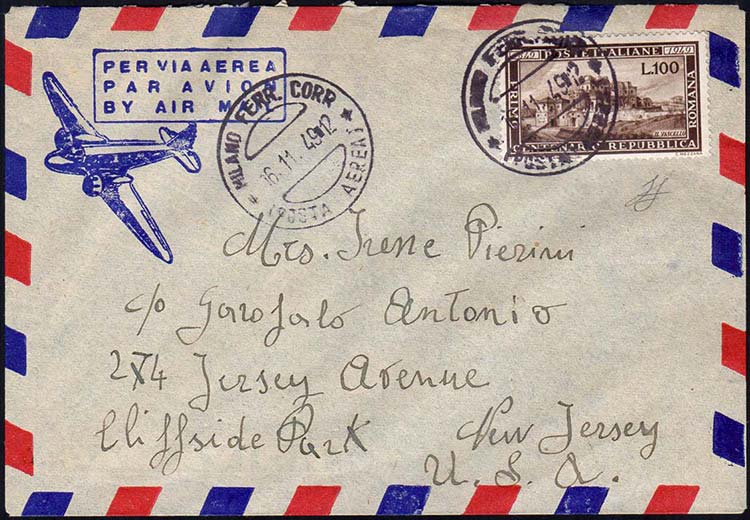 PER VIA AEREA
PAR AVION
BY AIR M
MILANO FERR. CORR
16.11.49 12
(POSTA AEREA)
MILANO FERR.
49 12
(POSTA
1849 POSTE ITALIANE 1949
L.100
PRIMO
ROMANA
IL VASCELLO
CENTENARIO REPUBBLICA
C. MEZZANA
Mrs. Irene Pierini
c/o Garofalo Antonio
274 Jersey Avenue
Cliffside Park New Jersey
U. S. A.